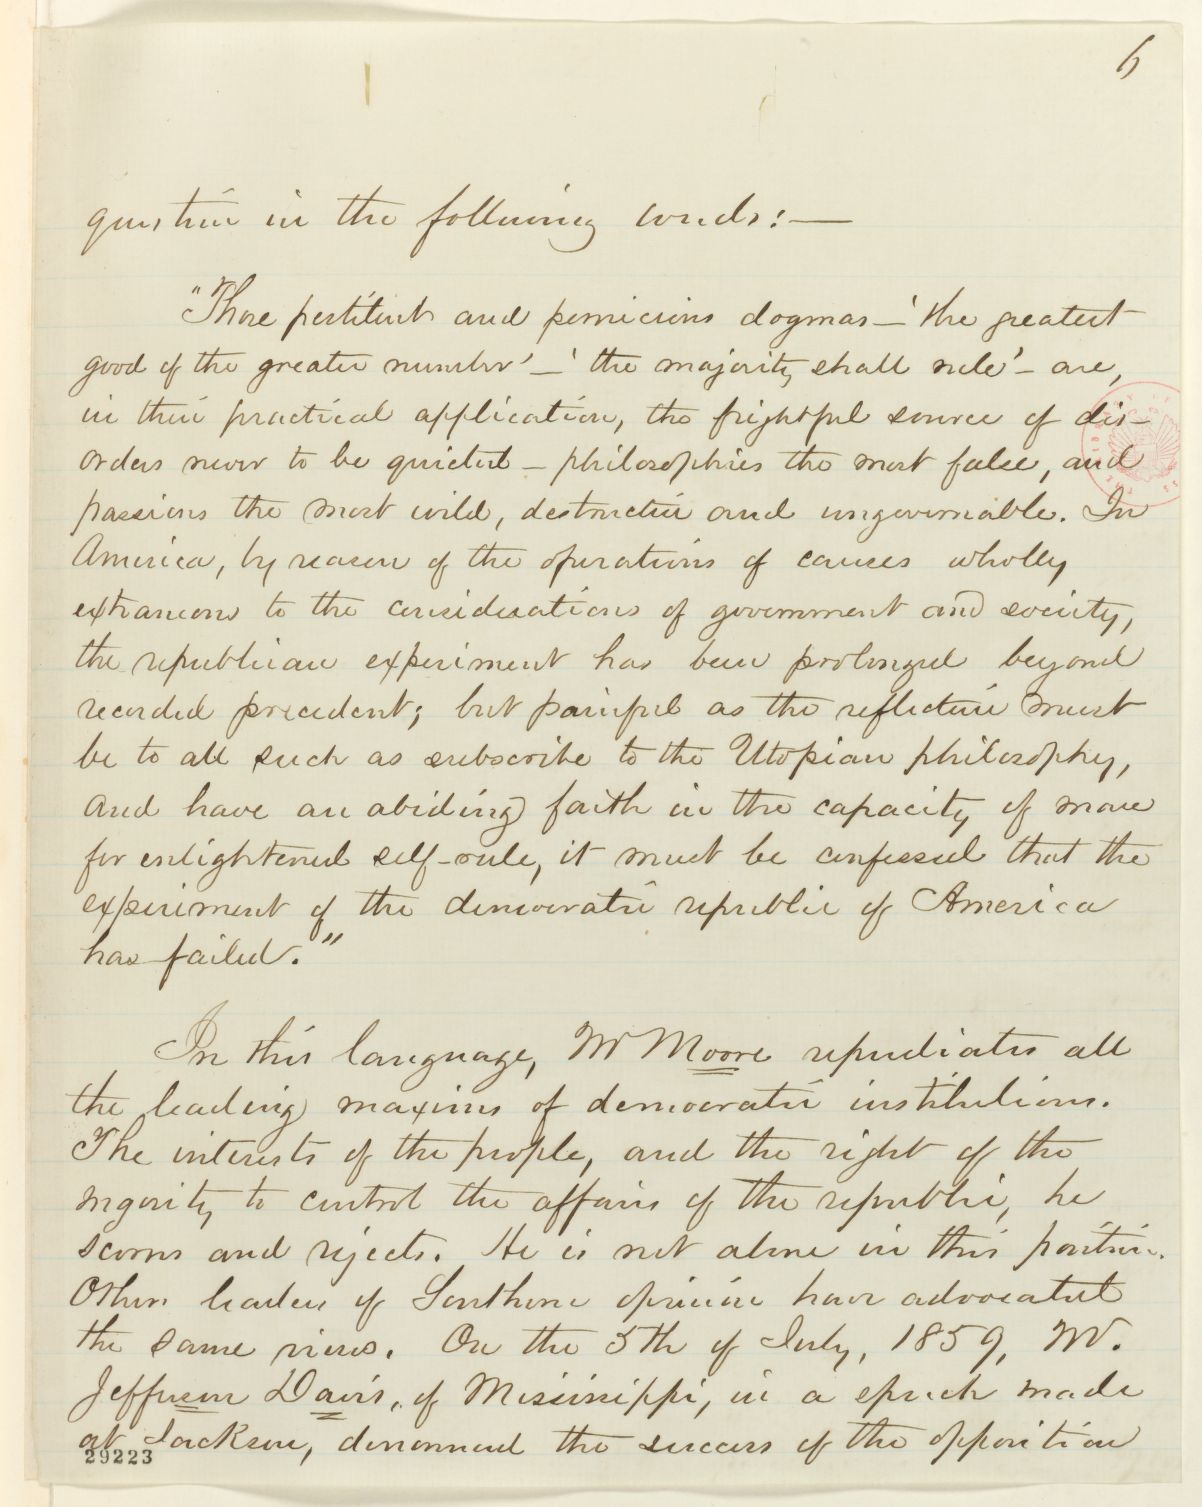 6
question in the following words:—
"Those pestilent and pernicious dogmas—'the greatest
good of the greater number'—'the majority shall rule'— are,
in their practical application, the frightful source of dis-
orders never to be quieted — philosophies the most false, and
passions the most wild, destructive and ungovernable. In
America, by reason of the operations of causes wholly
extraneous to the considerations of government and society,
the republican experiment has been prolonged beyond
recorded precedent; but painful as the reflection must
be to all such as subscribe to the Utopian philosophy,
and have an abiding faith in the capacity of man
for enlightened self-rule, it must be confessed that the
experiment of the democratic republic of America
has failed."
In this language, Mr Moore repudiates all
the leading maxims of democratic institutions.
The interests of the people, and the right of the
majority to control the affairs of the republic, he
scorns and rejects. He is not alone in this position.
Other leaders of Southern opinion have advocated
the same views. On the 5th of July, 1859, Mr.
Jefferson Davis, of Mississippi, in a speech made
at Jackson, denounced the success of the opposition
29223